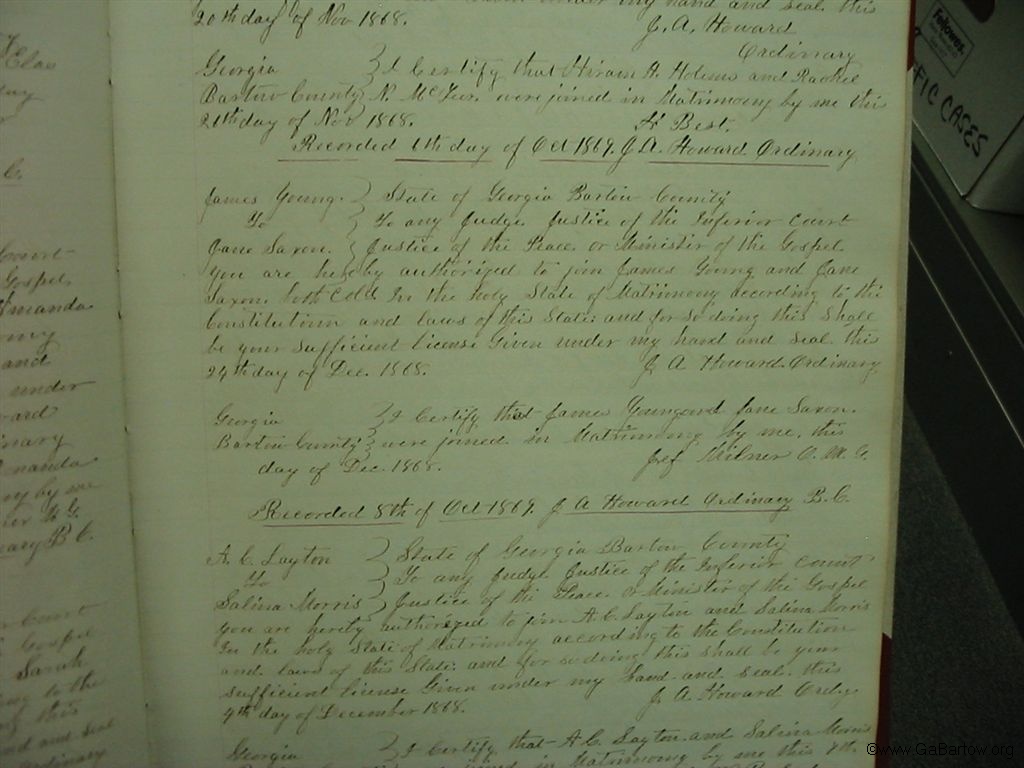 under my hand and seal this
20th day of Nov 1868.
J. A. Howard
Ordinary
Georgia } I Certify that Hiram H. Holems and Rachel
Bartow County } N. McTeer. were joined in Matrimony by me this
26th day of Nov 1868. H Best.
Recorded 6th day of Oct 1869. J. A. Howard Ordinary
James Young. } State of Georgia Bartow County
To } To any Judge Justice of the Inferior Court
Jane Saxon. } Justice of the Peace or Minister of the Gospel
You are hereby authorized to join James Young and Jane
Saxon. both Cold In the holy State of Matrimony according to the
Constitution and laws of this State: and for so doing this shall
be your sufficient license Given under my hand and seal this
24th day of Dec. 1868. J A Howard Ordinary
Georgia } I Certify that James Young and Jane Saxon.
Bartow County } were joined in Matrimony by me, this
day of Dec. 1868. Jef Milner O. M. G.
Recorded 8th of Oct 1869. J A Howard Ordinary B. C.
A. C. Layton } State of Georgia Bartow County
To } To any Judge Justice of the Inferior Court
Salina Morris } Justice of the Peace or Minister of the Gospel
you are hereby authorized to join A. C. Layton and Salina Morris
In the holy State of Matrimony according to the Constitution
and laws of this State: and for so doing this shall be your
sufficient license Given under my hand and seal this
4th day of December 1868. J. A. Howard Ordy.
Georgia } I Certify that A. C. Layton and Salina Morris
joined in Matrimony by me this
Court
Gospel
Amanda
and
under
Court
Gospel
Sarah
to the
this
and seal
Ordinary
Fellowes
FIC CASES
©www.GaBartow.org